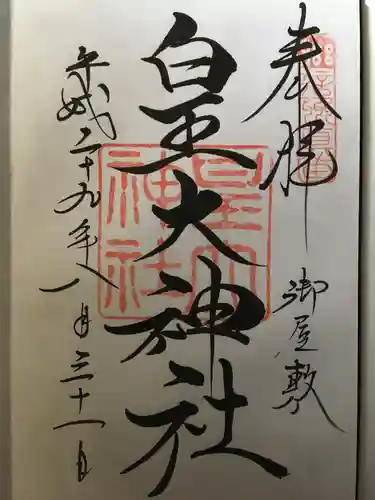 奉拝
御屋敷
皇大神社
平成二十九年八月三十一日
皇大
神社